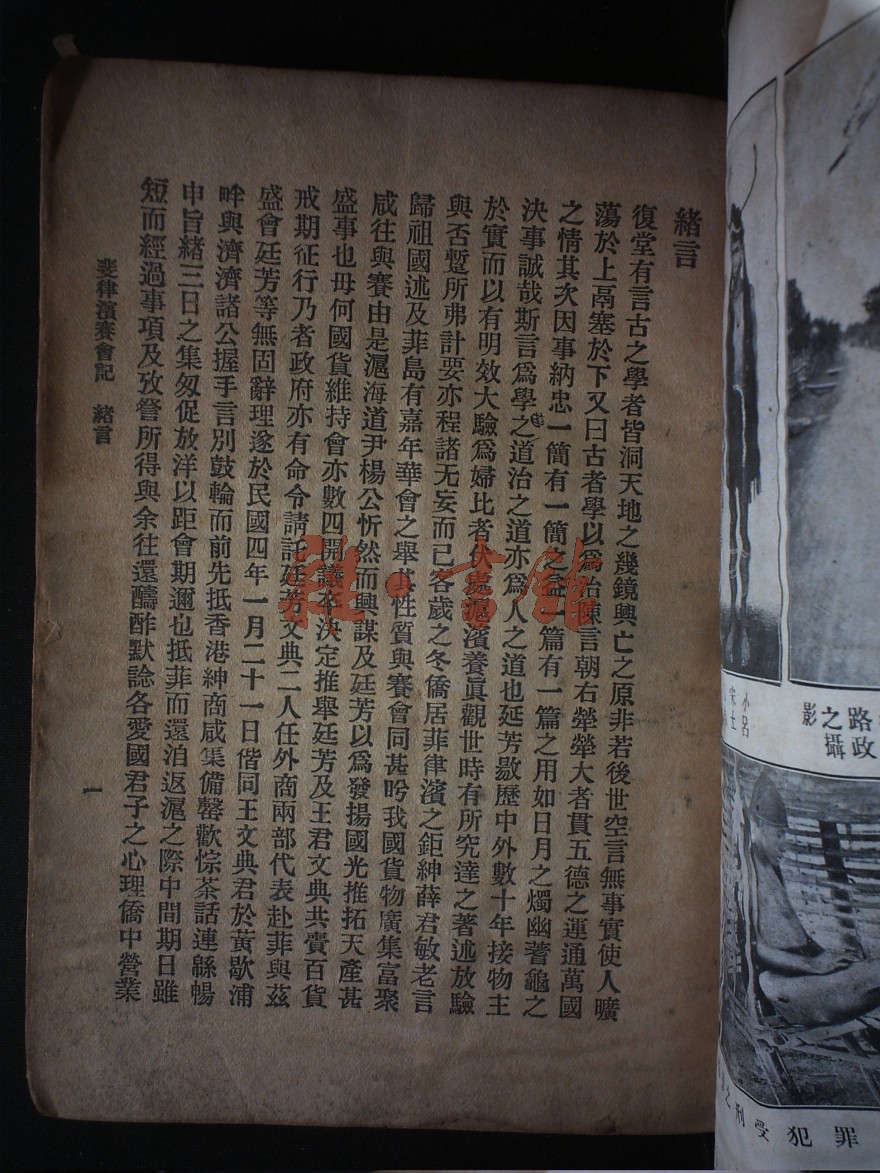 緒言
復堂有言古之學者皆洞天地之幾鏡興亡之原非若後世空言無事實使人曠
蕩於上鬲塞於下又曰古者學以爲治陳言朝右犖犖大者貫五德之運通萬國
之情其次因事納忠一簡有一簡之益一篇有一篇之用如日月之燭幽蓍龜之
決事誠哉斯言爲學之道治之道亦爲人之道也廷芳敭歷中外數十年接物主
於實而以有明效大驗爲婦比者伏處滬濱養眞觀世時有所究達之著述放驗
與否蹔所弗計要亦程諸无妄而已客歲之冬僑居菲律濱之鉅紳薛君敏老言
歸祖國述及菲島有嘉年華會之舉其性質與賽會同甚吟我國貨物廣集富聚
咸往與賽由是滬海道尹楊公忻然而興謀及廷芳以爲發揚國光推拓天產甚
盛事也毋何國貨維持會亦數四開議卒決定推舉廷芳及王君文典共賫百貨
戒期征行乃者政府亦有命令請託廷芳文典二人任外商兩部代表赴菲與茲
盛會廷芳等無固辭理遂於民國四年一月二十一日偕同王文典君於黃歇浦
畔與濟濟諸公握手言別鼓輪而前先抵香港紳商咸集備罄歡悰茶話連緜暢
申旨緒三日之集匆促放洋以距會期邇也抵菲而還泊返滬之際中間期日雖
短而經過事項及攷詧所得與余往還醻酢默諗各愛國君子之心理僑中營業
斐律濱賽會記 緒言
一
雜·書館
小呂
宗士
路之影
政攝
罪犯受刑之